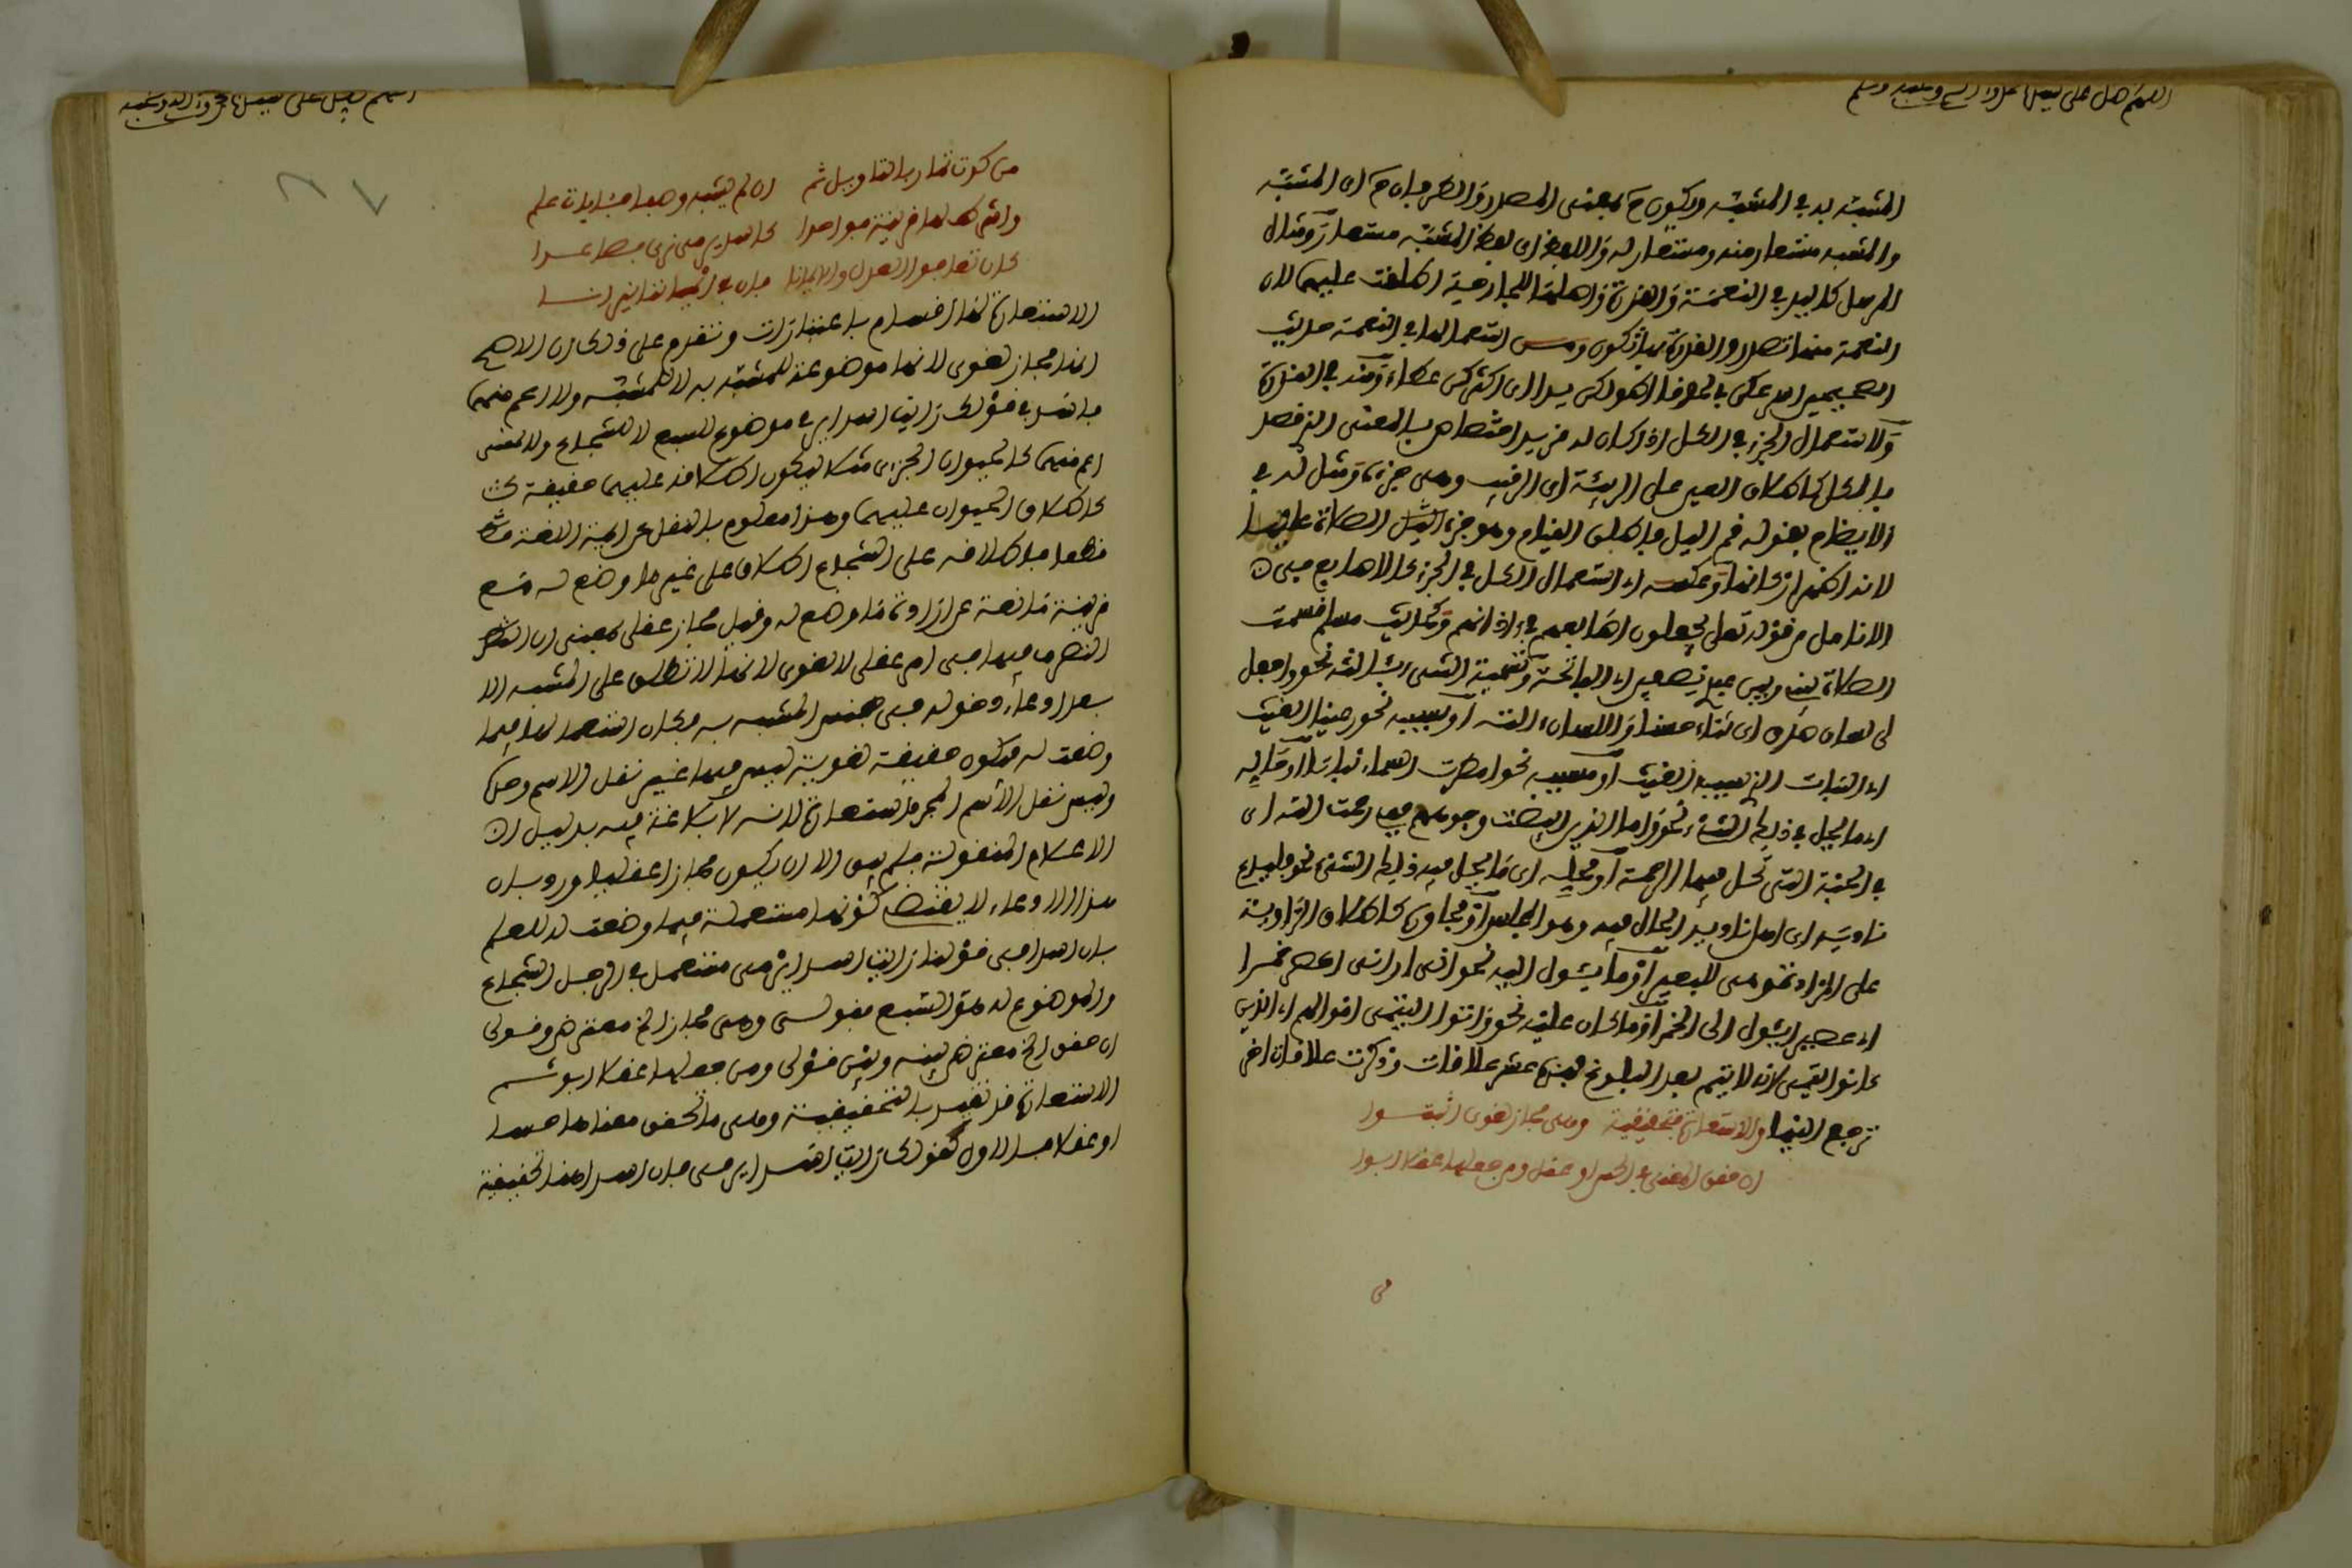 اللهم صل على سيدنا محمد وآله وصحبه وسلم
المشبه به في المشبه ويكون ح بمعنى المصدر والطرفان ح اى المشبه
والمشبه مستعار منه ومستعار له واللفظ اى لفظ المشبه مستعار ومثال
المرسل كاليد في النعمة والقدرة واصلها للجارحة اطلقت عليهما لان
النعمة منها تصدر والقدرة بها تكون ومن استعمالها في النعمة حديث
الصحيحين اسرعكن لحوقا اطولكن يدا اى اكثركن عطاء ومنه في القدرة
وكاستعمال الجزء في الكل اذا كان له مزيد اختصاص بالمعنى الذى قصد
بالكل كاطلاق العين على الربيئة اى الرقيب وهى جزء ومثل له في
الايضاح بقوله قم اليل فاطلق القيام وهو جزء الصلاة عليها
لانه اظهر اركانها وعكسه اى استعمال الكل في الجزء كالاصابع من
الانامل من قوله تعالى يجعلون اصابعهم في اذانهم وكحديث مسلم قسمت
الصلاة بينى وبين عبدى نصفين اى الفاتحة وتسمية الشىء بئالته نحو واجعل
لى لسان صدق اى ثناء حسنا واللسان الته او بسببه نحو رعينا الغيث
اى النبات الذى سببه الغيث او مسببه نحو امطرت السماء نباتا او حاله
اى ما يحل في ذلك الشىء نحو واما الذين ابيضت وجوههم ففي رحمت الله اى
في الجنة التى تحل فيها الرحمة او محله اى ما يحل فيه ذلك الشىء نحو فليدع
ناديه اى اهل ناديه الحال فيه وهو المجلس او مجاوره كاطلاق الراوية
على المزادة وهى للبعير او ما يئول اليه نحو انى ارانى اعصر خمرا
اى عصيرا يئول الى الخمر او ما كان عليه نحو واتوا اليتمى اموالهم اى الذين
كانوا يتمى لانه لا يتم بعد البلوغ فهذه عشر علاقات وذكرت علاقات اخر
ترجع اليها والاستعارة تحقيقية وهى مجاز لغوى اثبتوا
ان حقق المعنى في الحس او عقل ومن جعلها عقلا ابوا
من
اللهم صل على سيدنا محمد وآله وصحبه
من كون ثمار بالتاويل ثم ان لم يشبه وهما
واشرط لها قرينة فواحدا كاسد يرمى فما عدا
كان تعافوا العدل والايمانا فان في ايماننا نيرانا
الاستعارة لها اقسام باعتبارات ونقدم على ذلك ان الاصح
انها مجاز لغوى لانها موضوعة للمشبه به لا للمشبه ولا اعم منهما
فاسد في قولك رايت اسدا يرمى موضوع للسبع لا للشجاع ولا لمعنى
اعم منهما كالحيوان الجرىء مثلا ليكون اطلاقه عليهما حقيقة
كاطلاق الحيوان عليهما وهذا معلوم بالنقل عن ايمة اللغة
قطعا فاطلاقه على الشجاع اطلاق على غير ما وضع له مع
قرينة مانعة عن ارادة ما وضع له وقيل مجاز عقلى بمعنى ان
التصرف فيها في امر عقلى لا لغوى لانها لا تطلق على المشبه الا
بعد ادعاء دخوله في جنس المشبه به فكان استعمالها فيما
وضعت له فتكون حقيقة لغوية ليس فيها غير نقل الاسم وحده
وليس نقل الاسم المجرد استعارة لانه لا بلاغة فيه بدليل ان
الاعلام المنقولة فلم يبق الا ان يكون مجازا عقليا ورد بان
هذا الادعاء لا يقتضى كونها مستعملة فيما وضعت له للعلم
بان اسدا في قولنا رايت اسدا يرمى مستعمل في الرجل الشجاع
والموضوع له هو السبع فقولى وهى مجاز الخ معترض وقولى
ان حقق الخ معترض بينه وبين قولى ومن جعلها عقلا ابوا ثم
الاستعارة قد تقيد بالتحقيقية وهى ما تحقق معناها حسا
او عقلا فالاول كقولك رايت اسدا يرمى فان اسدا هنا تحقيقية